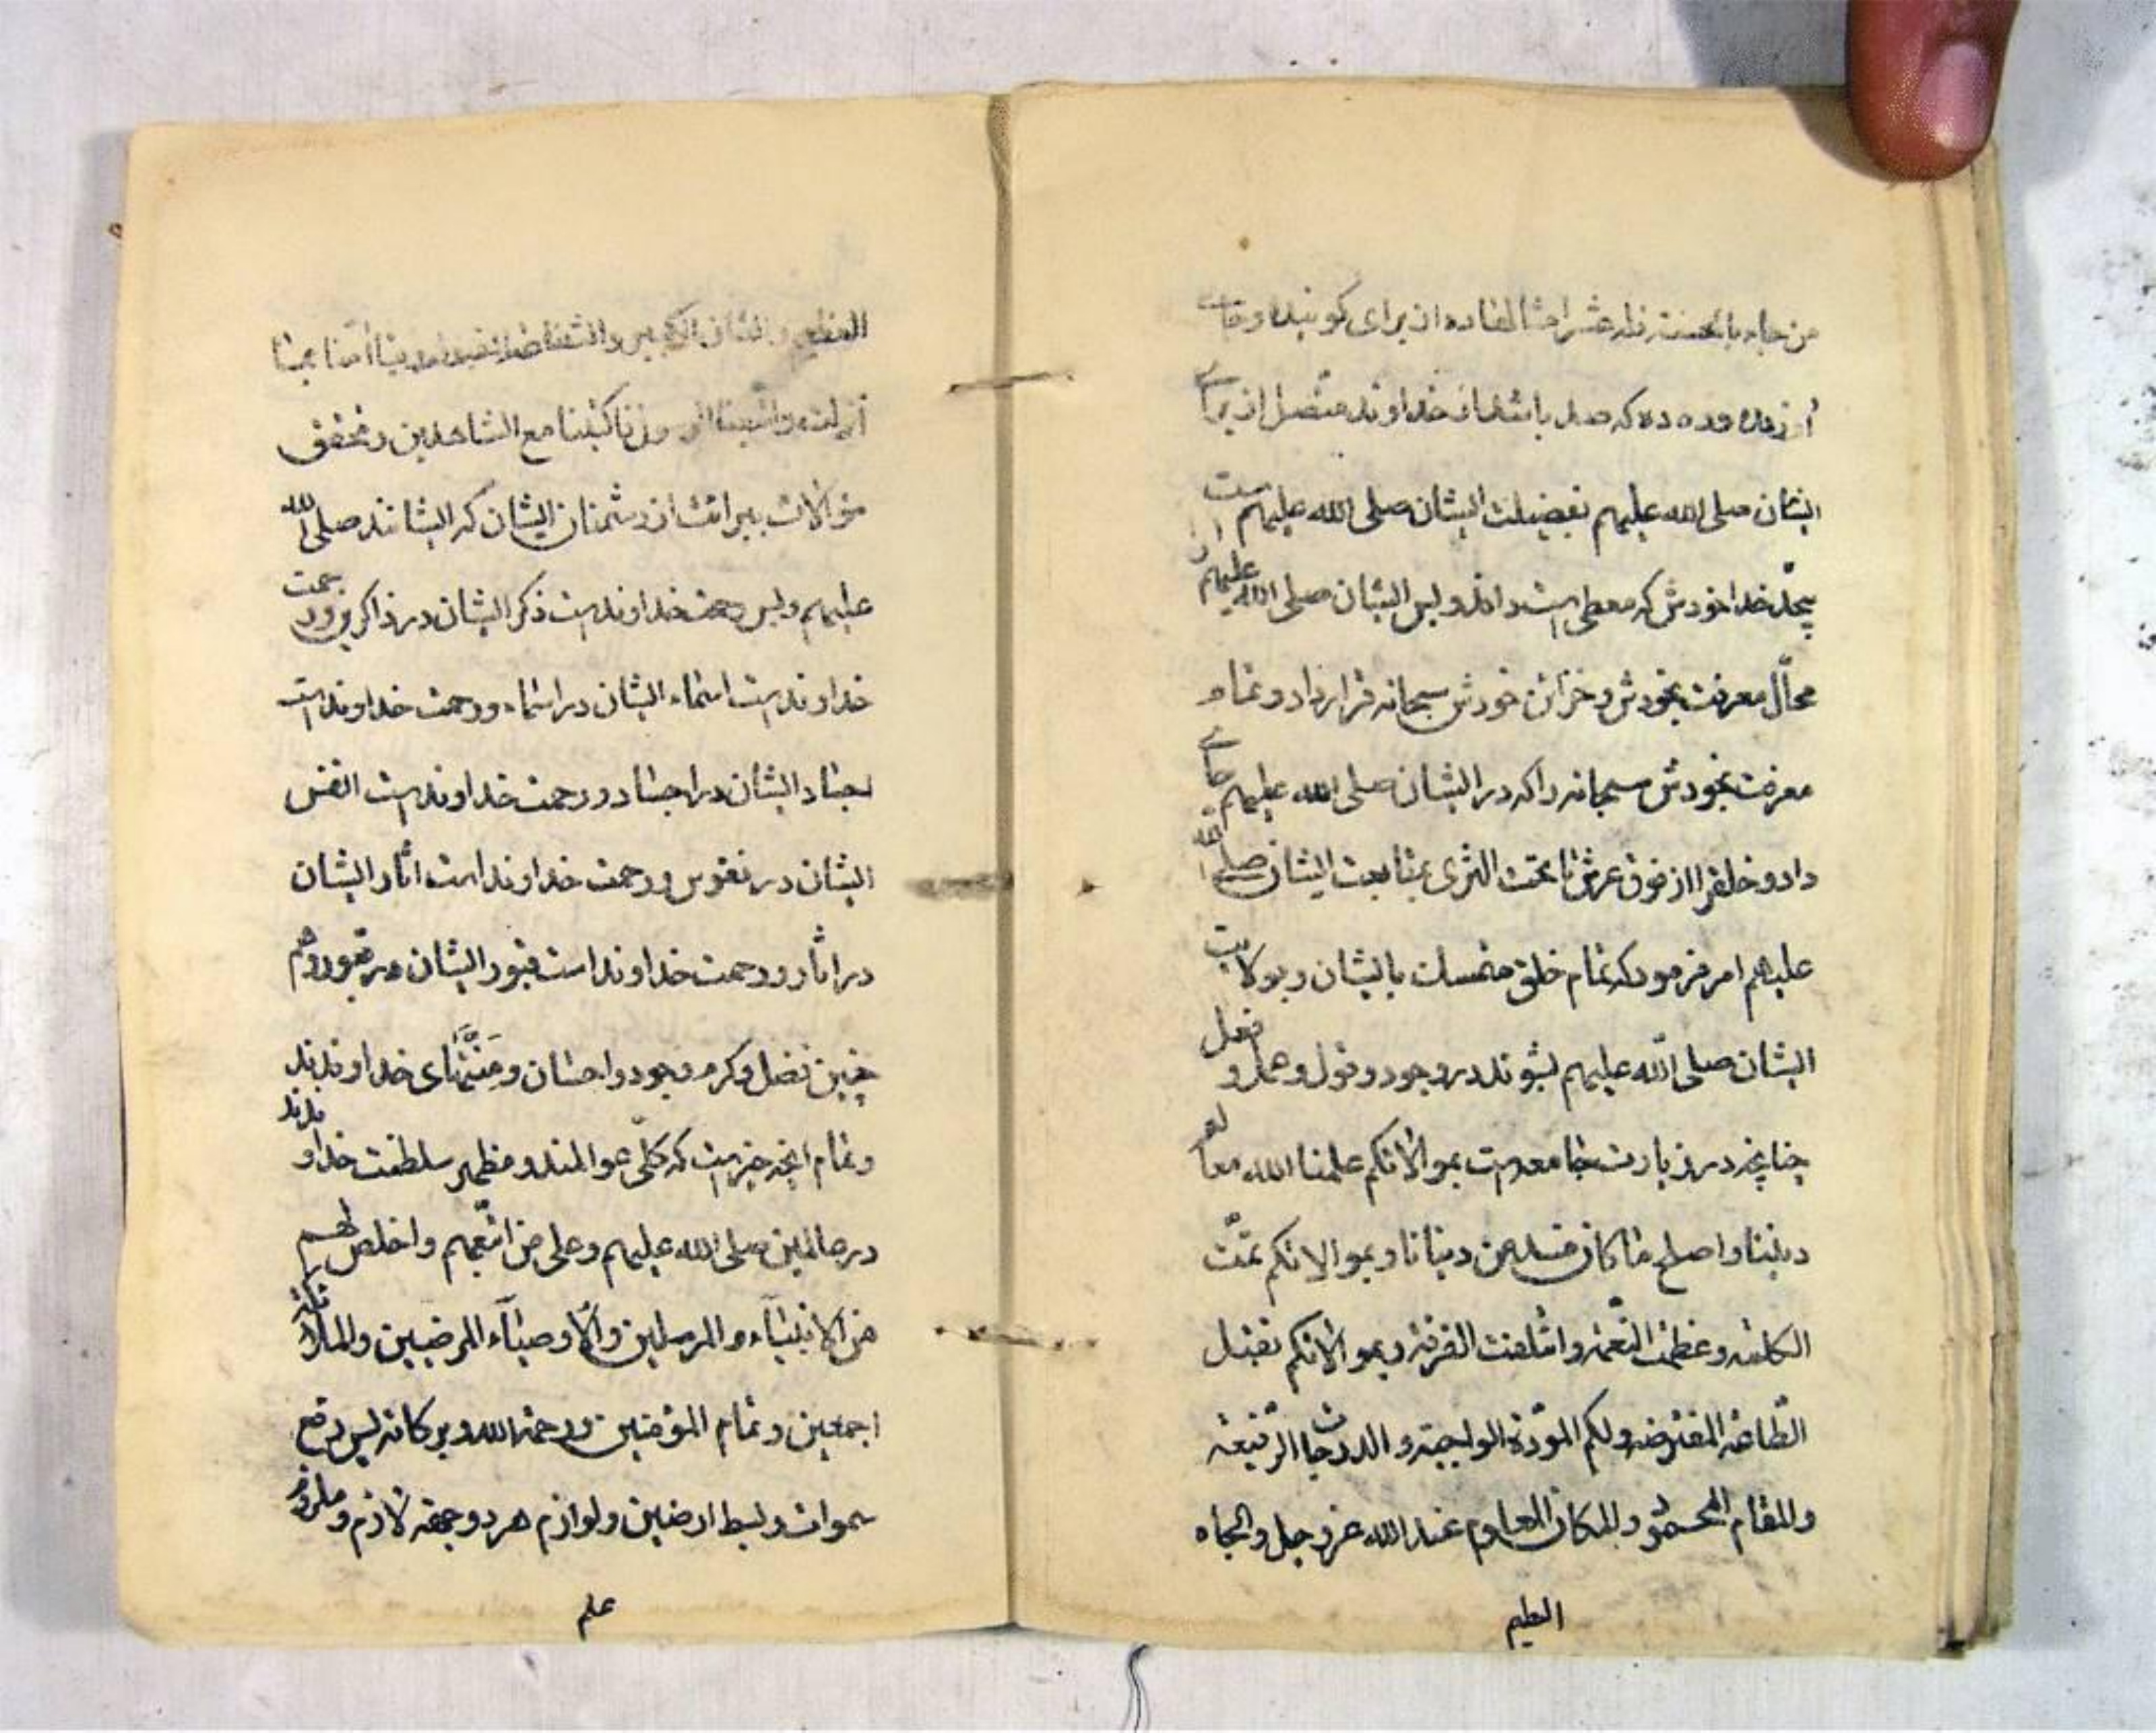 من جاء بالحسنة فله عشر امثالها ده از برای گوینده و جای
از ده و ده که صد باشد از خداوند متصل از برای
ایشان صلی الله علیهم بفضیلت ایشان صلی الله علیهم است
خدا خودش که معطی است داند و لیس ایشان صلی الله علیهم را
محال معرفت بخودش و خزائن خودش سبحانه قرار داد و تمام
معرفت بخودش سبحانه را که در ایشان صلی الله علیهم جای
داد و خلق را از فوق عرش تا تحت الثری بمتابعت ایشان صلی الله
علیهم امر فرمود که تمام خلق متمسک بایشان و بولایت
ایشان صلی الله علیهم بشوند در وجود و قول و عمل و فعل
چنانچه در زیارت جامعه است بموالاتکم علمنا الله معالم
دیننا و اصلح ما کان فسد من دنیانا و بموالاتکم تمت
الکلمة و عظمت النعمة و ائتلفت الفرقة و بموالاتکم تقبل
الطاعة المفترضة و لکم المودة الواجبة و الدرجات الرفیعة
والمقام المحمود والمکان المعلوم عند الله عز و جل والجاه
العظیم
العظیم والشان الکبیر والشفاعة المقبولة ربنا امنا بما
انزلت واتبعنا الرسول فاکتبنا مع الشاهدین و تحقق
موالات ببرائت از دشمنان ایشان که ایشانند صلی الله
علیهم و لیس رحمت خداوند است ذکر ایشان در ذاکرین و رحمت
خداوند است اسماء ایشان در اسماء و رحمت خداوند است
اجساد ایشان در اجساد و رحمت خداوند است انفس
ایشان در نفوس و رحمت خداوند است اثار ایشان
در اثار و رحمت خداوند است قبور ایشان در قبور و هم
چنین فضل و کرم و جود و احسان و منتهای خداوندند
و تمام انچه خیر است که کلی عوالمند و مظهر سلطنت خداوندند
در عالمین صلی الله علیهم و علی من اتبعهم و اخلص لهم
من الانبیاء و المرسلین و الاوصیاء المرضیین و الملائکة
اجمعین و تمام المؤمنین و رحمة الله و برکاته پس رفع
سموات و بسط ارضین و لوازم هر دو جمعه لازم و ملزوم
علم